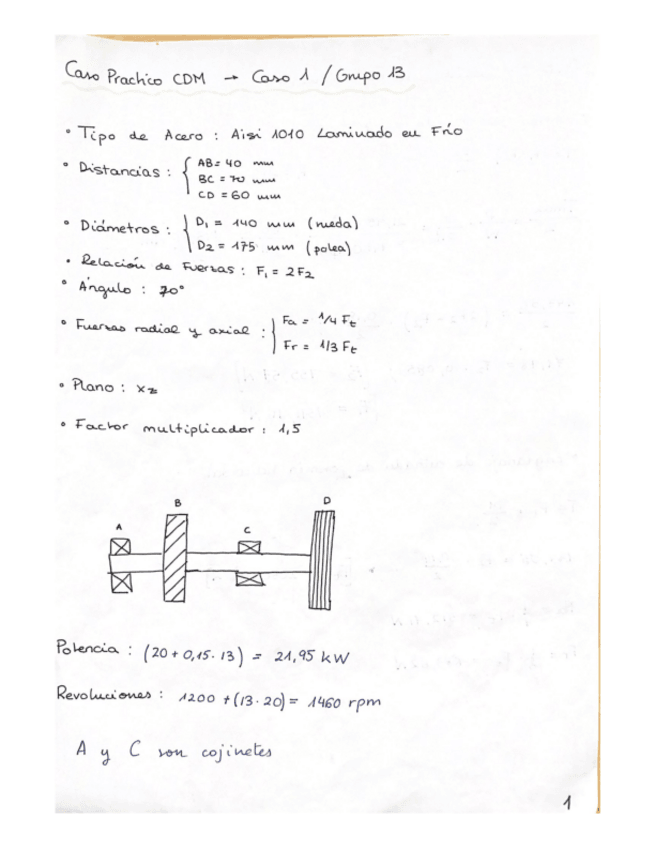 Caso Practico CDM → Caso 1 / Grupo 13
• Tipo de Acero : Aisi 1010 Laminado en Frío
• Distancias : { AB = 40 mm
BC = 70 mm
CD = 60 mm
• Diámetros : { D1 = 140 mm (rueda)
D2 = 175 mm (polea)
• Relación de Fuerzas : F1 = 2F2
• Ángulo : 20°
• Fuerzas radial y axial : { Fa = 1/4 Ft
Fr = 1/3 Ft
• Plano : xz
• Factor multiplicador : 1,5
A B C D
Potencia : (20 + 0,15 · 13) = 21,95 kW
Revoluciones : 1200 + (13 · 20) = 1460 rpm
A y C son cojinetes
1